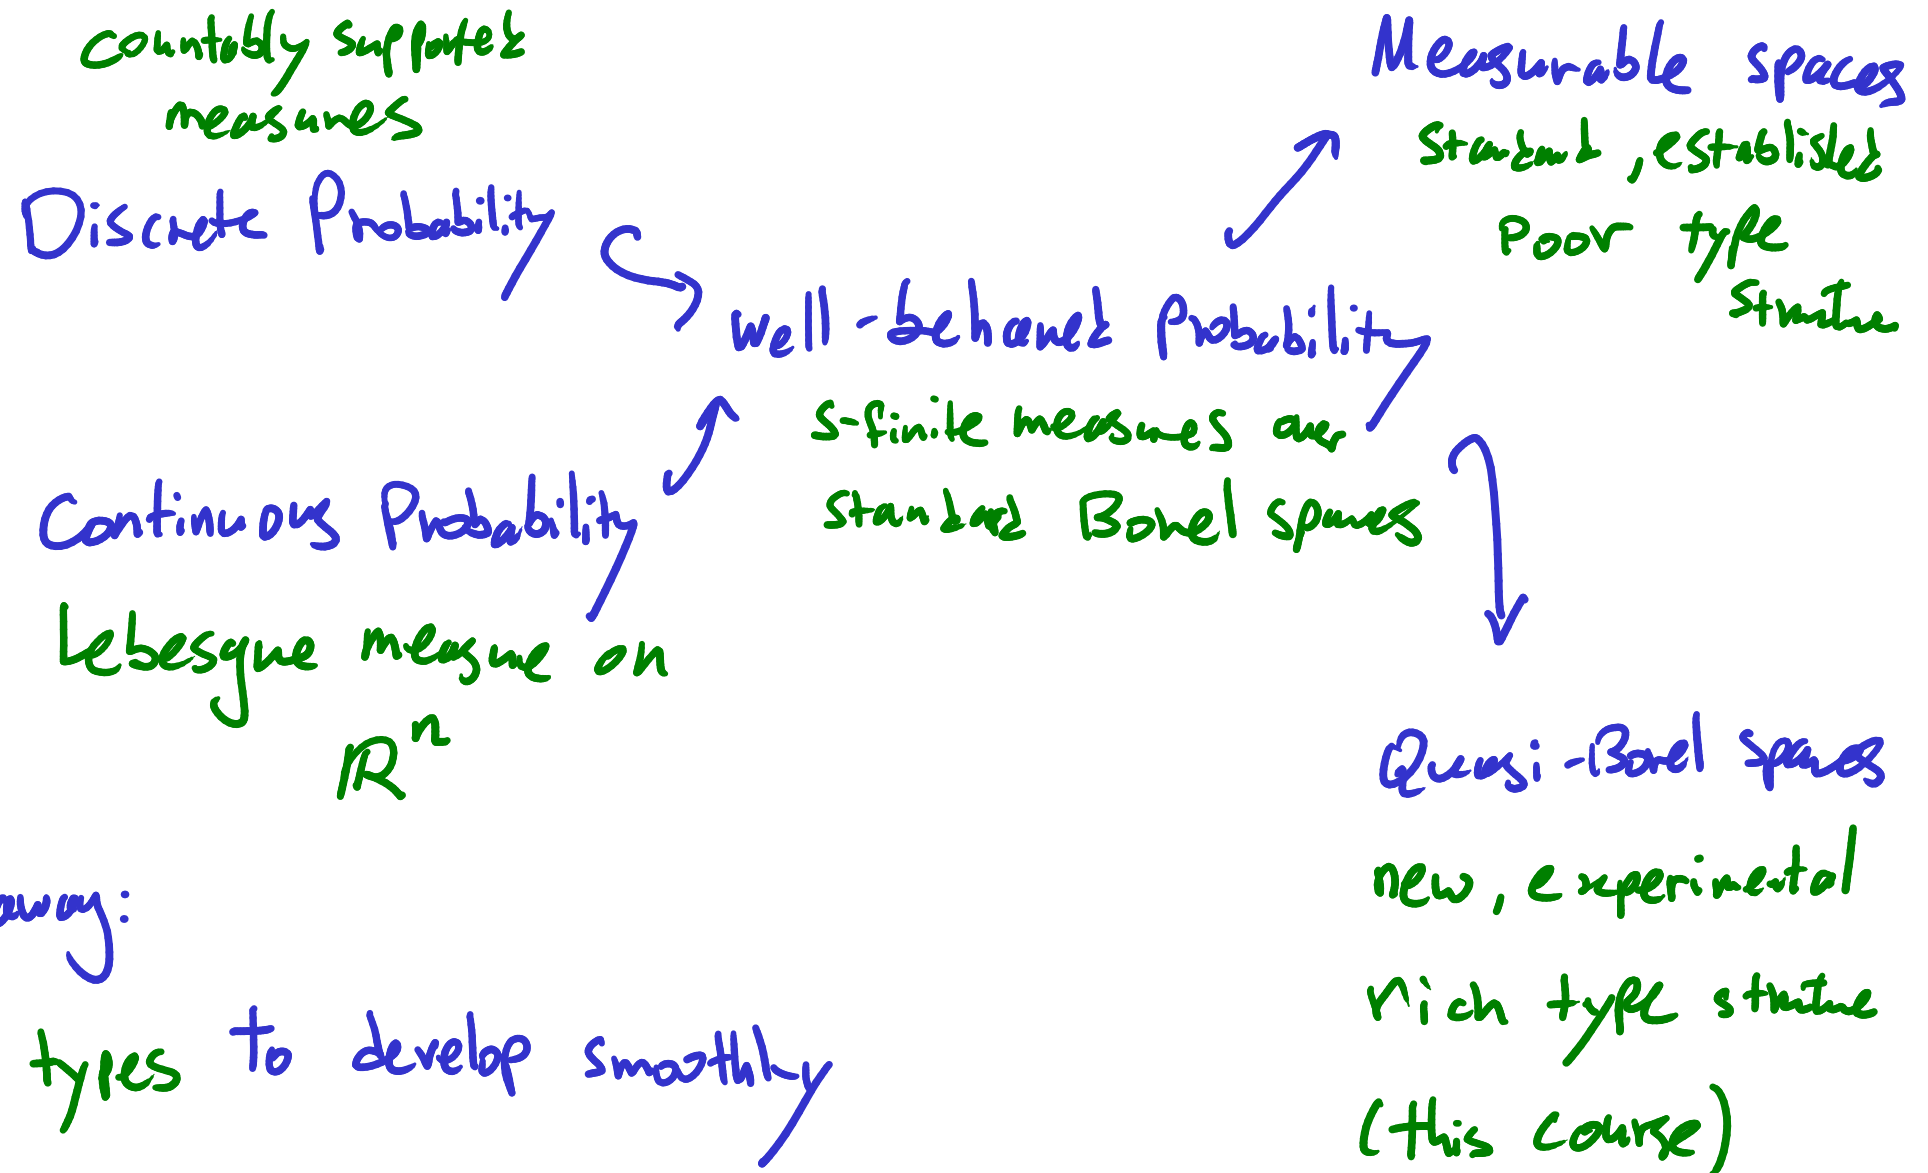 countably supported
measures
Discrete Probability
Continuous Probability
Lebesgue measure on
ℝⁿ
well-behaved Probability
s-finite measures over
standard Borel spaces
Measurable spaces
standard, established
poor type
structure
Quasi-Borel spaces
new, experimental
rich type structure
(this course)
away:
types to develop smoothly